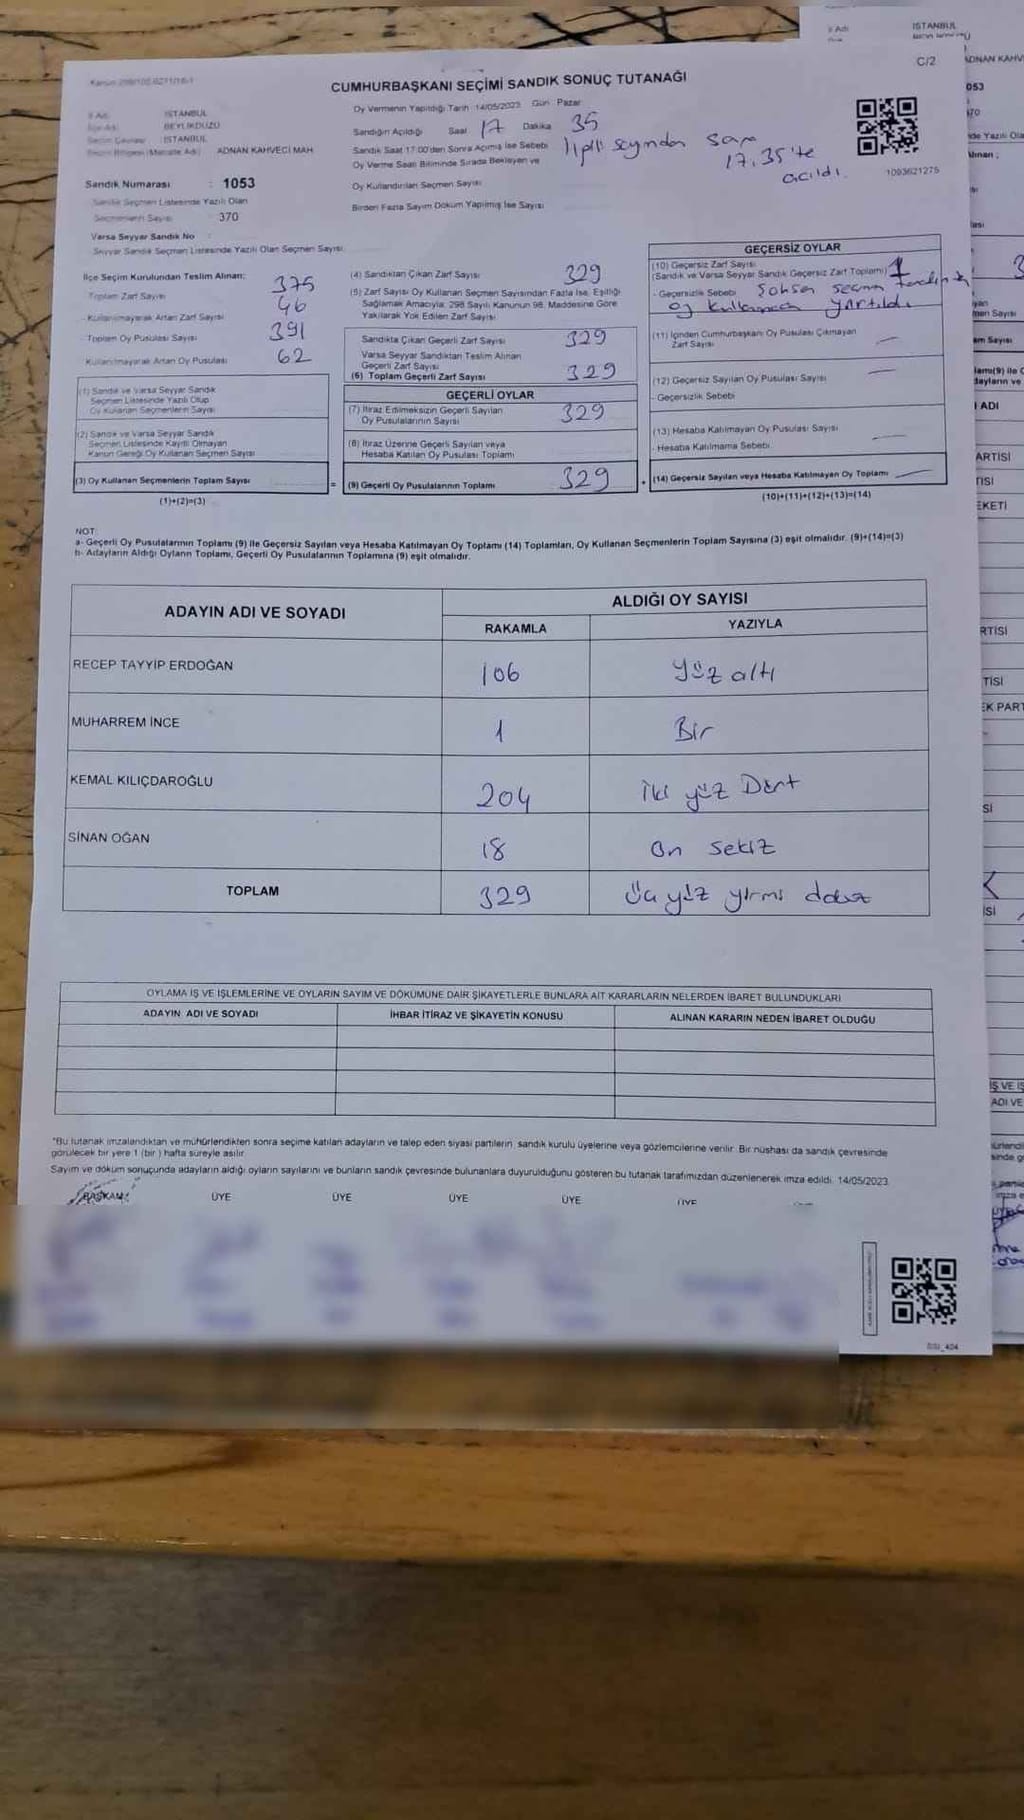 İl Adı
İSTANBUL
C/2
ADNAN KAHV
CUMHURBAŞKANI SEÇİMİ SANDIK SONUÇ TUTANAĞI
İSTANBUL
BEYLİKDÜZÜ
İSTANBUL
ADNAN KAHVECİ MAH
Oy Vermenin Yapıldığı Tarih 14/05/2023 Gün Pazar
Sandığın Açıldığı Saat 17 Dakika 35
Sandık Saat 17:00'den Sonra Açılmış İse Sebebi
17.35'te açıldı.
Oy Verme Saati Bitiminde Sırada Bekleyen ve
Oy Kullandırılan Seçmen Sayısı
Birden Fazla Sayım Döküm Yapılmış İse Sayısı
1093621275
Sandık Numarası : 1053
Sandık Seçmen Listesinde Yazılı Olan
Seçmenlerin Sayısı : 370
Varsa Seyyar Sandık No
Seyyar Sandık Seçmen Listesinde Yazılı Olan Seçmen Sayısı:
İlçe Seçim Kurulundan Teslim Alınan:
Toplam Zarf Sayısı 375
- Kullanılmayarak Artan Zarf Sayısı 46
Toplam Oy Pusulası Sayısı 391
Kullanılmayarak Artan Oy Pusulası 62
(1) Sandık ve Varsa Seyyar Sandık
Seçmen Listesinde Yazılı Olup
Oy Kullanan Seçmenlerin Sayısı
(2) Sandık ve Varsa Seyyar Sandık
Seçmen Listesinde Kayıtlı Olmayan
Kanun Gereği Oy Kullanan Seçmen Sayısı
(3) Oy Kullanan Seçmenlerin Toplam Sayısı
(1)+(2)=(3)
(4) Sandıktan Çıkan Zarf Sayısı 329
(5) Zarf Sayısı Oy Kullanan Seçmen Sayısından Fazla İse, Eşitliği
Sağlamak Amacıyla, 298 Sayılı Kanunun 98. Maddesine Göre
Yakılarak Yok Edilen Zarf Sayısı
Sandıkta Çıkan Geçerli Zarf Sayısı 329
Varsa Seyyar Sandıktan Teslim Alınan
Geçerli Zarf Sayısı
(6) Toplam Geçerli Zarf Sayısı 329
GEÇERLİ OYLAR
(7) İtiraz Edilmeksizin Geçerli Sayılan
Oy Pusulalarının Sayısı 329
(8) İtiraz Üzerine Geçerli Sayılan veya
Hesaba Katılan Oy Pusulası Toplamı
=
(9) Geçerli Oy Pusulalarının Toplamı 329
GEÇERSİZ OYLAR
(10) Geçersiz Zarf Sayısı
(Sandık ve Varsa Seyyar Sandık Geçersiz Zarf Toplamı) 1
- Geçersizlik Sebebi Şahsen seçmen
oy yırtıldı
(11) İçinden Cumhurbaşkanı Oy Pusulası Çıkmayan
Zarf Sayısı
(12) Geçersiz Sayılan Oy Pusulası Sayısı
- Geçersizlik Sebebi
(13) Hesaba Katılmayan Oy Pusulası Sayısı
- Hesaba Katılmama Sebebi
+ (14) Geçersiz Sayılan veya Hesaba Katılmayan Oy Toplamı
(10)+(11)+(12)+(13)=(14)
NOT
a- Geçerli Oy Pusulalarının Toplamı (9) ile Geçersiz Sayılan veya Hesaba Katılmayan Oy Toplamı (14) Toplamları, Oy Kullanan Seçmenlerin Toplam Sayısına (3) eşit olmalıdır. (9)+(14)=(3)
b- Adayların Aldığı Oyların Toplamı, Geçerli Oy Pusulalarının Toplamına (9) eşit olmalıdır.
ADAYIN ADI VE SOYADI
ALDIĞI OY SAYISI
RAKAMLA
YAZIYLA
RECEP TAYYİP ERDOĞAN 106 Yüz altı
MUHARREM İNCE 1 Bir
KEMAL KILIÇDAROĞLU 204 İki yüz Dört
SİNAN OĞAN 18 On sekiz
TOPLAM 329 Üç yüz yirmi dokuz
OYLAMA İŞ VE İŞLEMLERİNE VE OYLARIN SAYIM VE DÖKÜMÜNE DAİR ŞİKAYETLERLE BUNLARA AİT KARARLARIN NELERDEN İBARET BULUNDUKLARI
ADAYIN ADI VE SOYADI
İHBAR İTİRAZ VE ŞİKAYETİN KONUSU
ALINAN KARARIN NEDEN İBARET OLDUĞU
"Bu tutanak imzalandıktan ve mühürlendikten sonra seçime katılan adayların ve talep eden siyasi partilerin sandık kurulu üyelerine veya gözlemcilerine verilir. Bir nüshası da sandık çevresinde
görülecek bir yere 1 (bir) hafta süreyle asılır.
Sayım ve döküm sonuçunda adayların aldığı oyların sayılarını ve bunların sandık çevresinde bulunanlara duyurulduğunu gösteren bu tutanak tarafımızdan düzenlenerek imza edildi. 14/05/2023
BAŞKAN ÜYE ÜYE ÜYE ÜYE ÜYE